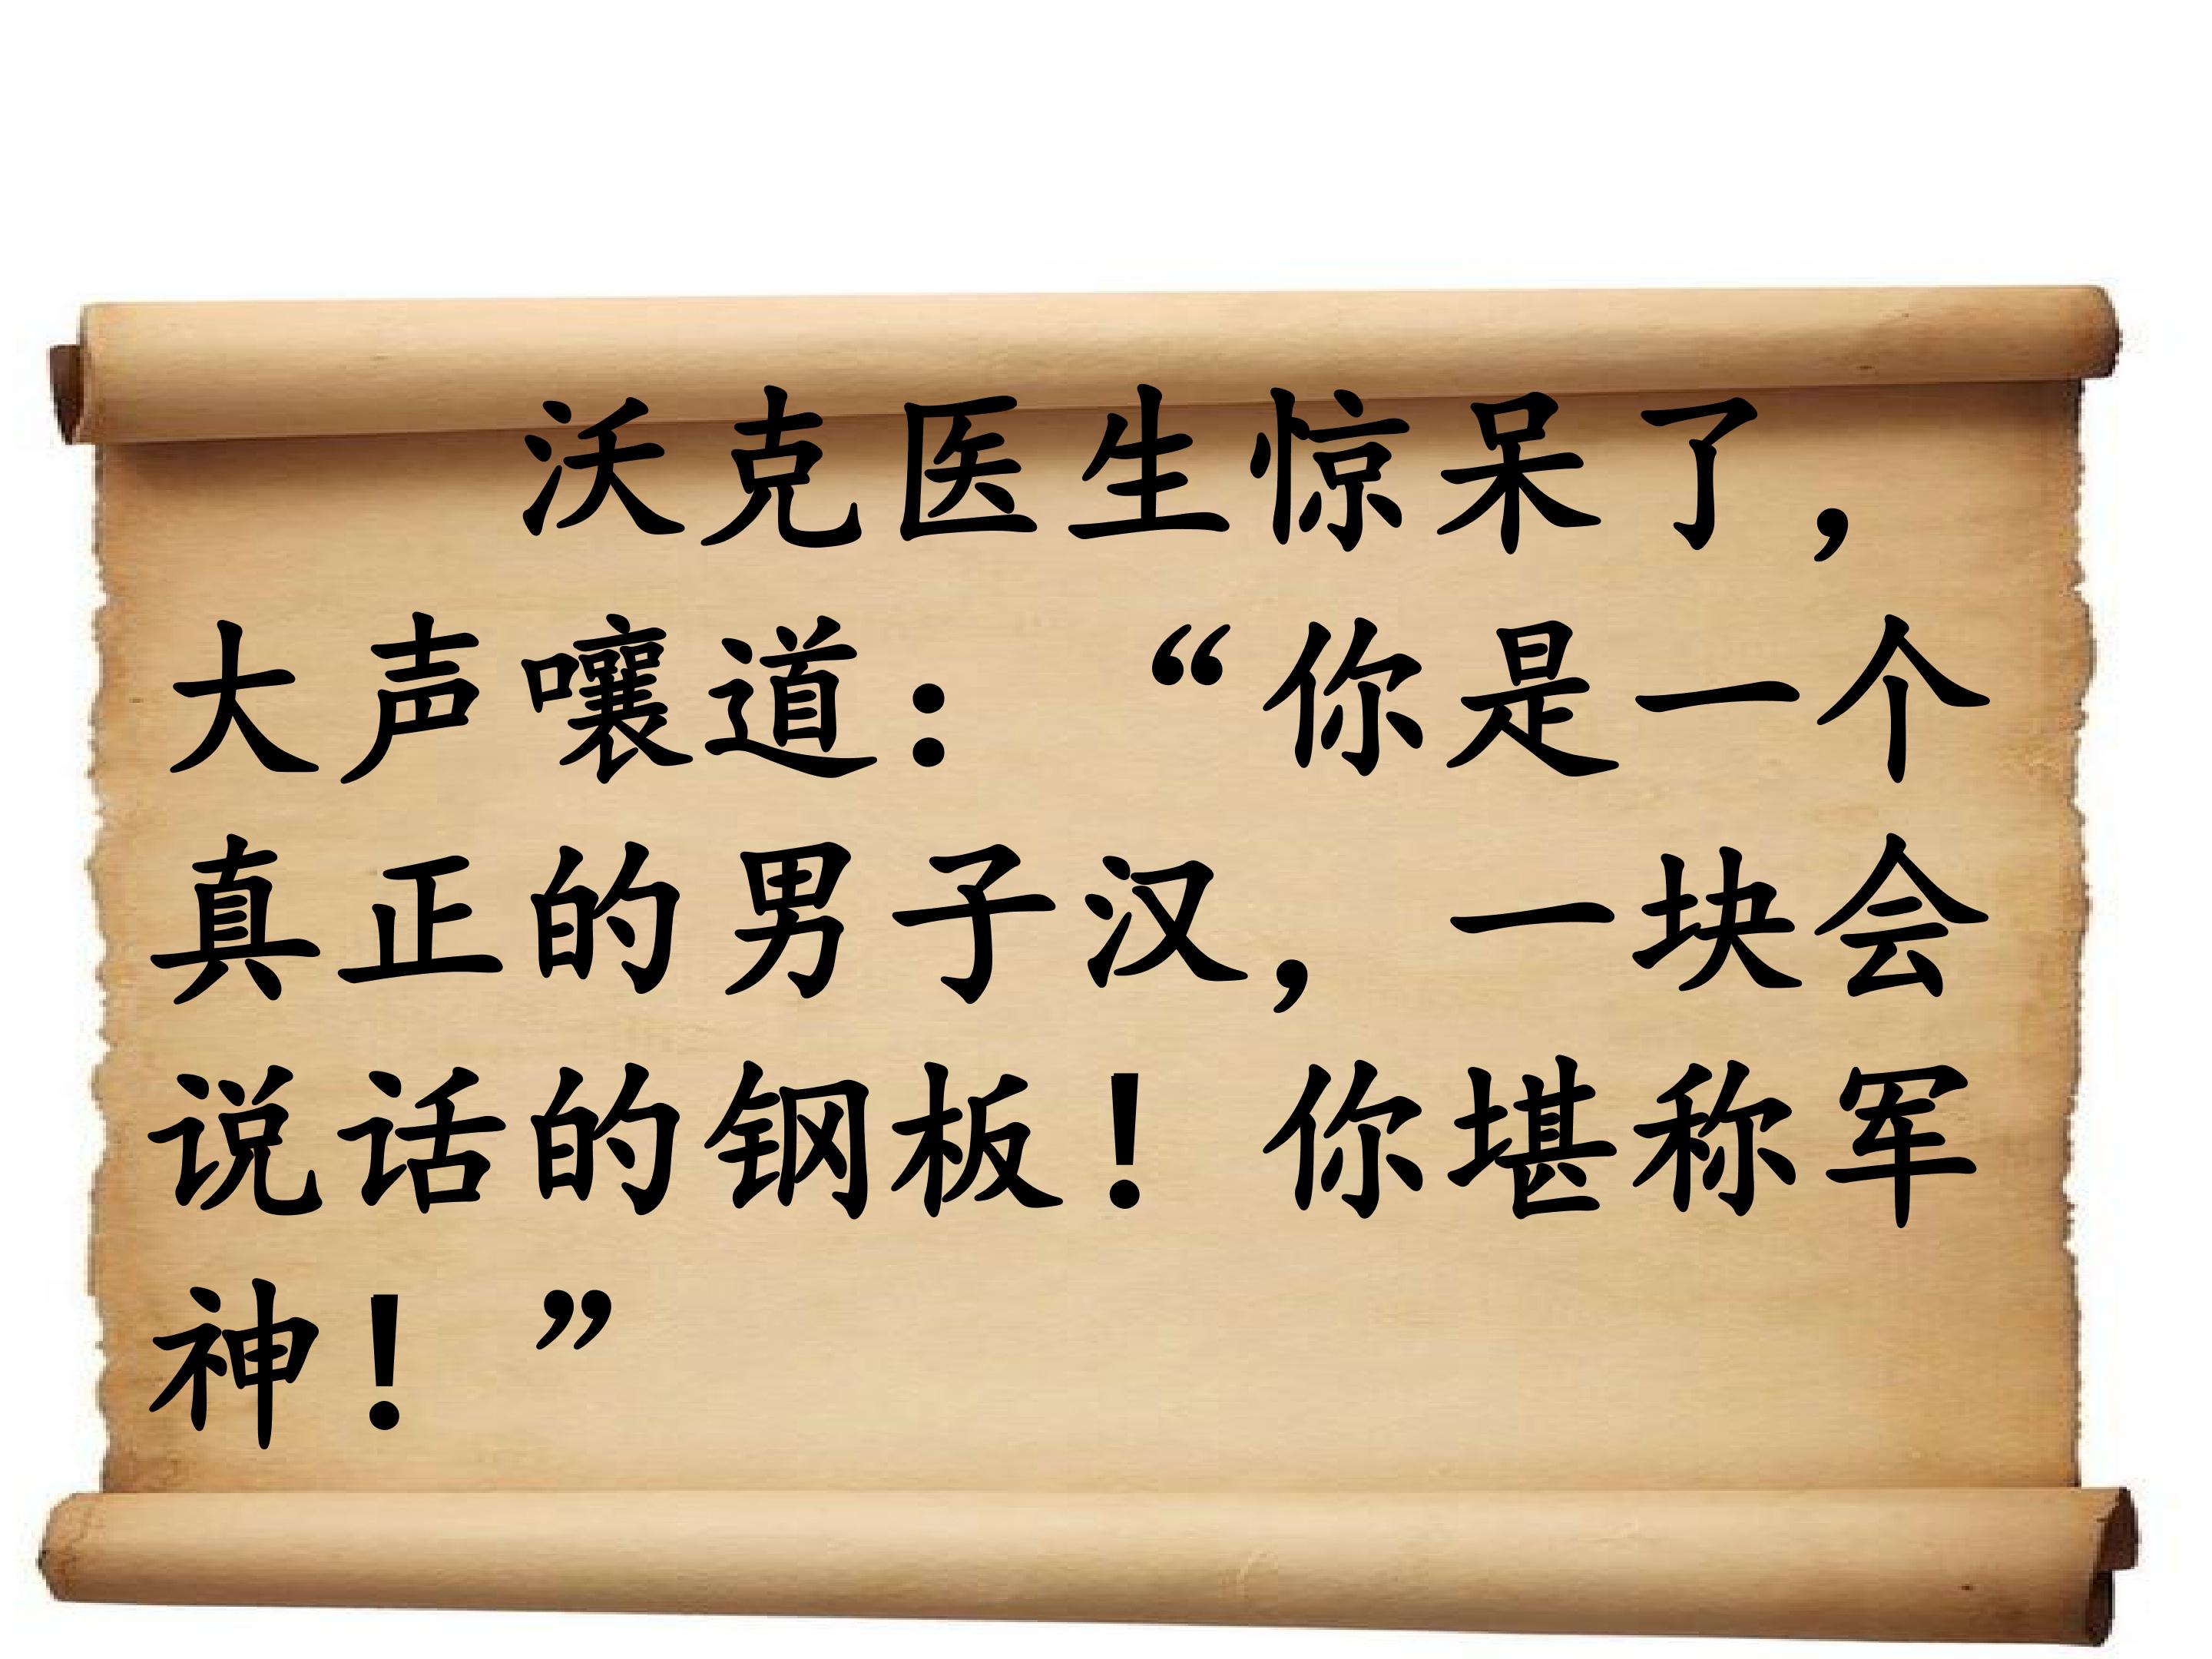 沃克医生惊呆了，
大声嚷道：“你是一个
真正的男子汉，一块会
说话的钢板！你堪称军
神！”